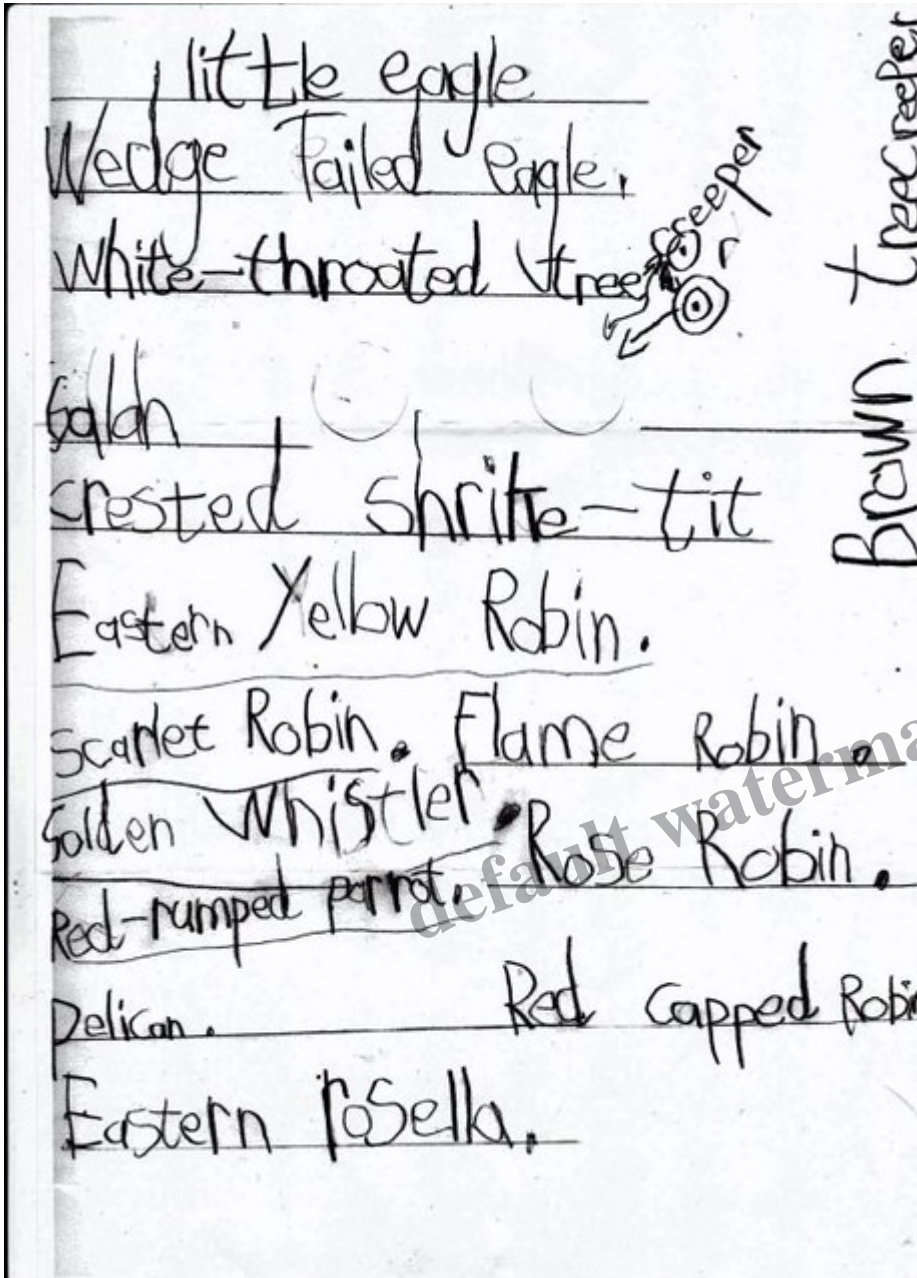 little eagle
Wedge Tailed eagle.
White-throated treecreeper
r
Galah
crested Shrike-tit
Eastern Yellow Robin.
Scarlet Robin. Flame Robin.
Golden Whistler. Rose Robin.
Red-rumped parrot.
Pelican. Red Capped Robin
Eastern rosella.
Brown treecreeper
default waterma